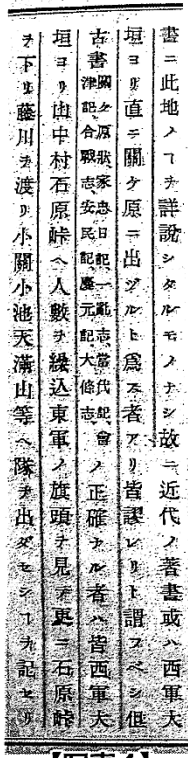 書ニ此地ノヿヲ詳説シタルモノナシ故ニ近代ノ著書或ハ西軍大
垣ヨリ直ニ關ケ原ニ出ヅルト爲ス者アリ皆謬レリト謂フベシ但
古書關ケ原狀家忠日記一亂志當代記會津記合戰志安民記慶元記大條志ノ正確ナル者ハ皆西軍大
垣ヨリ山中村石原峠ヘ人數ヲ繰込東軍ノ旗頭ヲ見テ更ニ石原峠
ヲ下リ藤川ヲ渡リ小關小池天滿山等ヘ隊ヲ出ダセシヿヲ記セリ